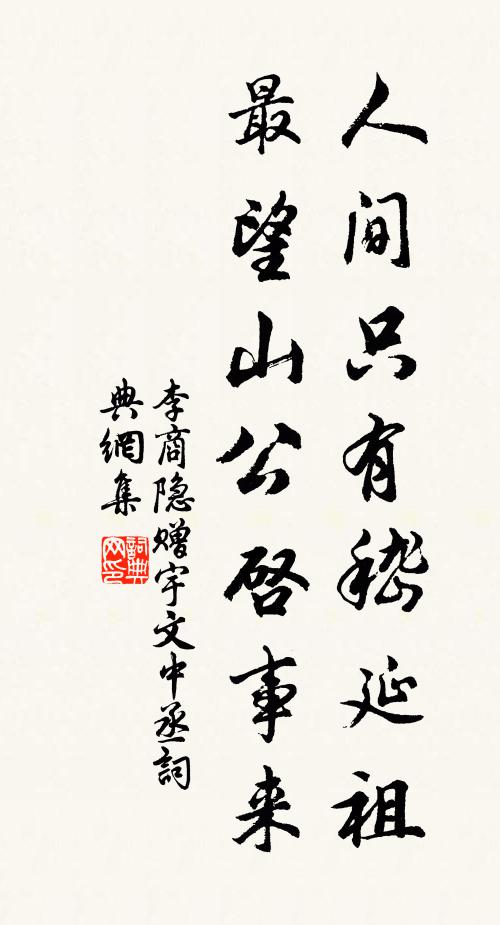 人间只有嵇延祖
最望山公啓事来
李商隐赠宇文中丞詞
典網集
詞典
网印